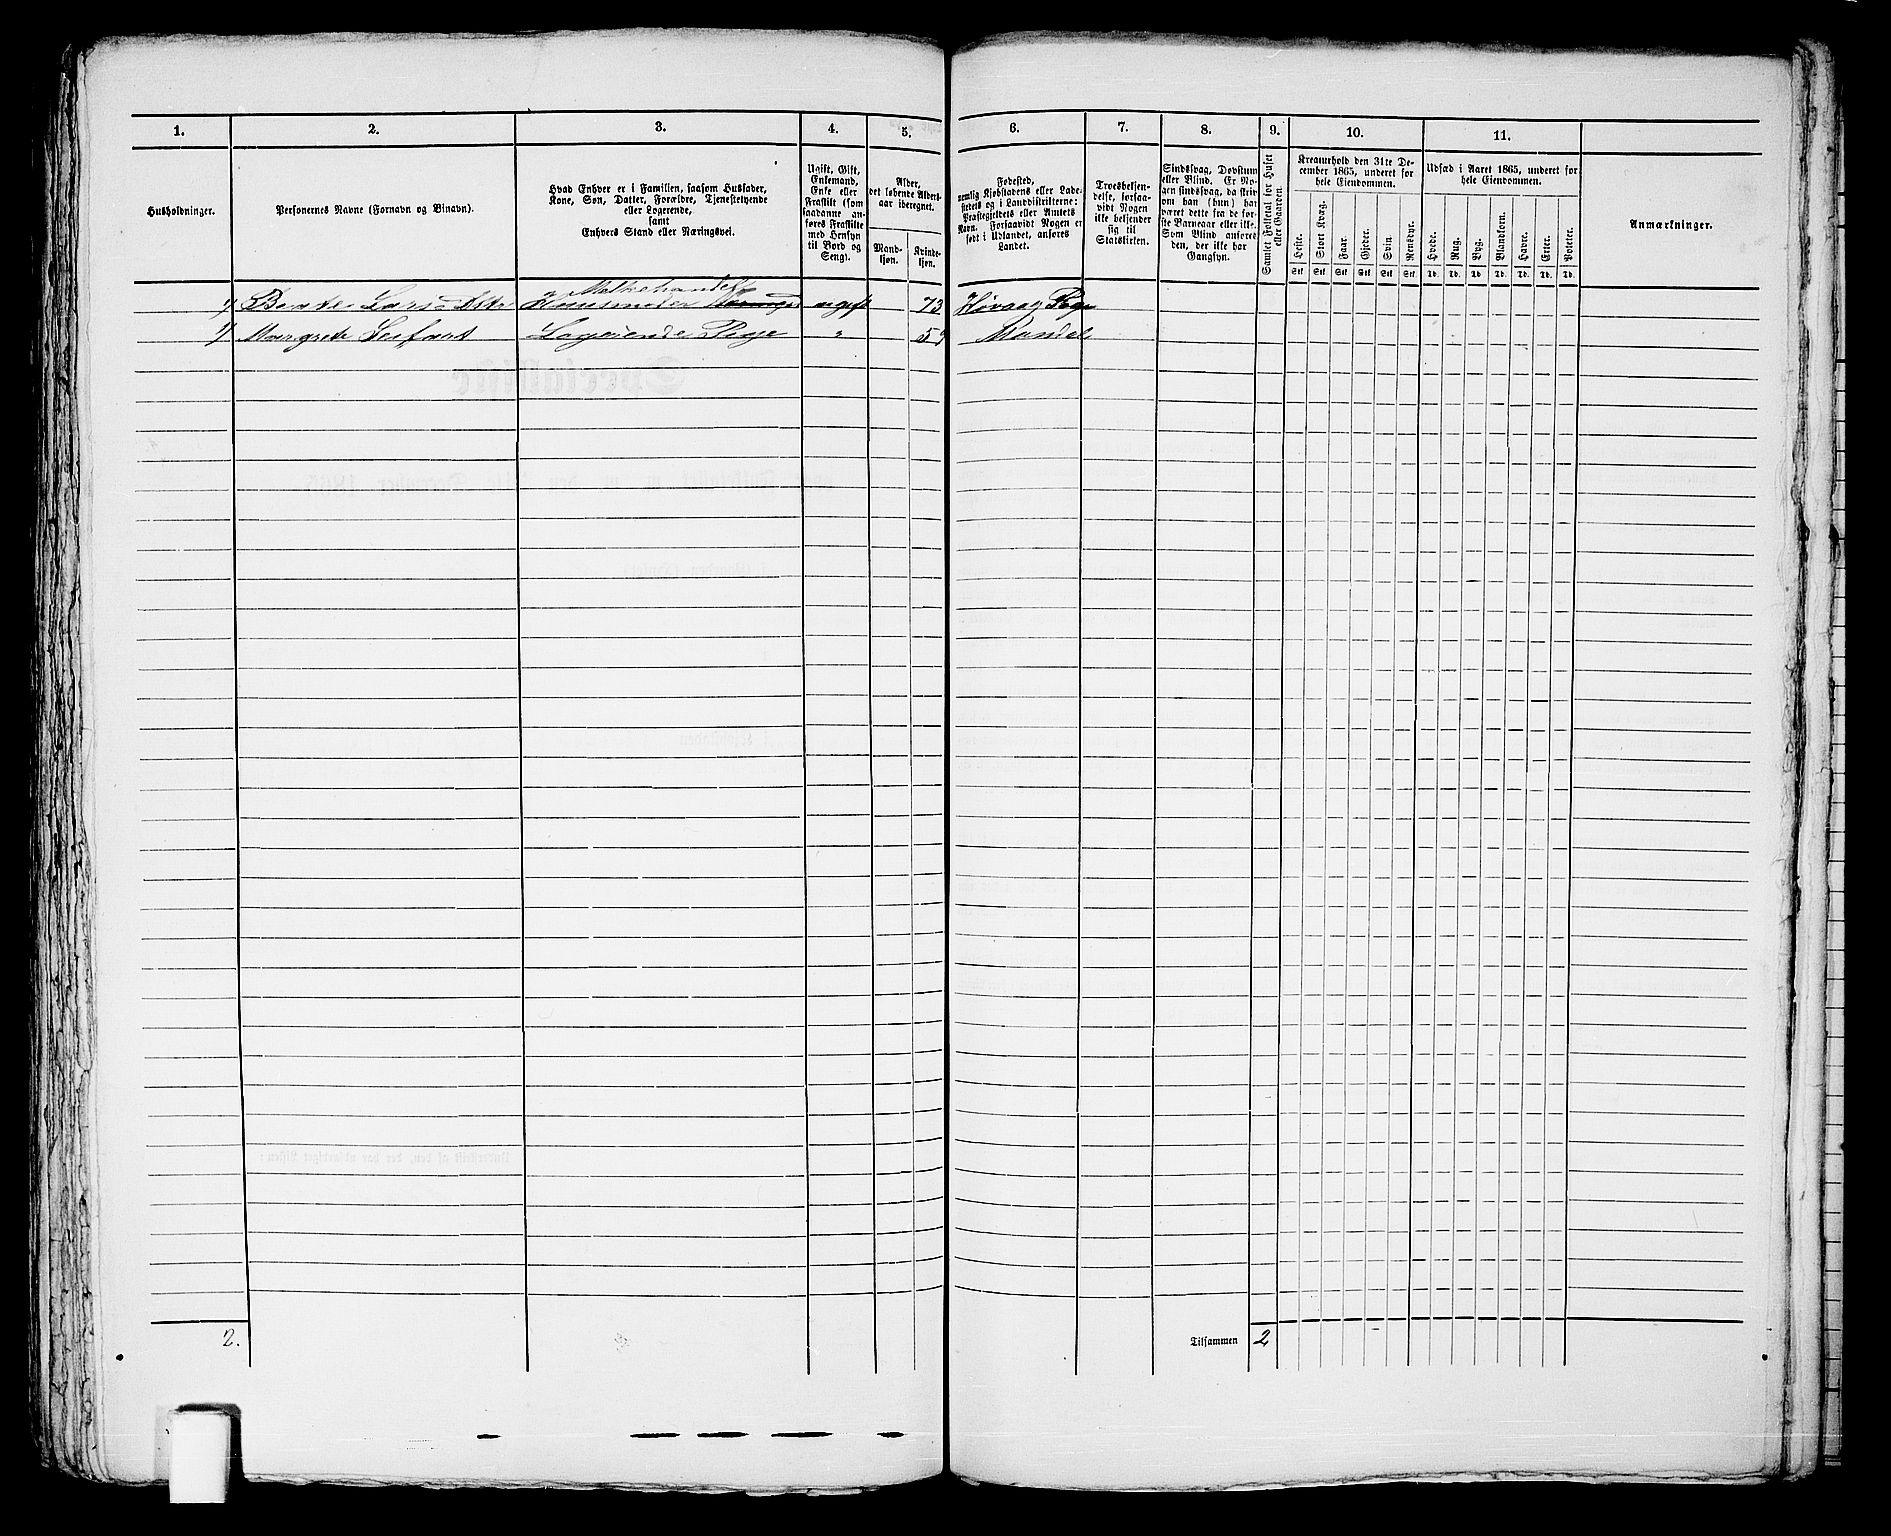 1.
2.
3.
4.
5.
6.
7.
8.
9.
10.
11.
Husholdninger.
Personernes Navne (Fornavn og Binavn).
Hvad Enhver er i Familien, saasom Husfader,
Kone, Søn, Datter, Forældre, Tjenestetyende
eller Logerende,
samt
Enhvers Stand eller Næringsvei.
Ugift, Gift,
Enkemand,
Enke eller
Fraskilt (som
saadanne an-
føres Fraskilte
med Hensyn
til Bord og
Seng).
Alder,
det løbende Alders-
aar iberegnet.
Mand-
kjøn.
Kvinde-
kjøn.
Fødested,
nemlig Kjøbstadens eller Lade-
stedets og i Landdistrikterne:
Præstegjeldets eller Amtets
Navn. Forsaavidt Nogen er
født i Udlandet, anføres
Landet.
Troesbekjen-
delse, forsaa-
vidt Nogen
ikke bekjender
sig til
Statskirken.
Sindssvag, Døvstum
eller Blind. Er No-
gen sindssvag, da skrives
om han (hun) har
været dette fra de før-
ste Barneaar eller ikke.
Som Blind anføres
den, der ikke har
Gangsyn.
Samlet Folketal for Huset
eller Gaarden.
Kreaturhold den 31te De-
cember 1865, underet for
hele Eiendommen.
Heste.
Stort Kvæg.
Faar.
Gjeder.
Svin
Rensdyr.
Stk Stk Stk Stk Stk Stk
Udsæd i Aaret 1865, underet for
hele Eiendommen.
Hvede.
Rug.
Byg.
Blandkorn.
Havre.
Erter.
Poteter.
Td. Td. Td Td. Td. Td. Td.
Anmærkninger.
Melkehandel
1/ Bente Lars Dtr Huusmoder ugift 73 Høvaag Pgj
1/ Margrete Seefart Logerende Pige " 59 Mandal
2.
Tilsammen 2